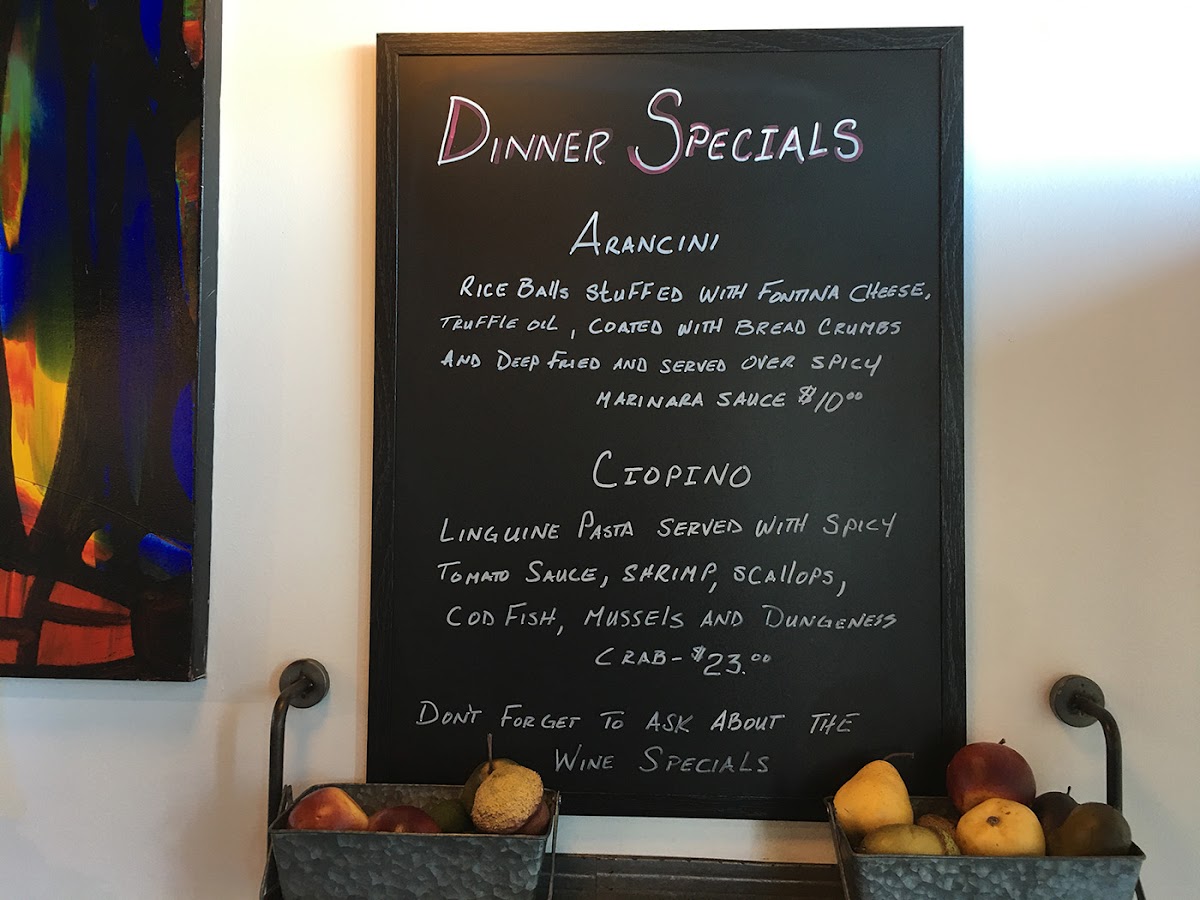 Dinner Specials
Arancini
Rice Balls Stuffed with Fontina Cheese,
Truffle Oil, Coated with Bread Crumbs
And Deep Fried and served over spicy
Marinara Sauce $10.00
Ciopino
Linguine Pasta served with spicy
Tomato Sauce, Shrimp, Scallops,
Cod Fish, Mussels and Dungeness
Crab - $23.00
Don't Forget to ask about the
Wine Specials